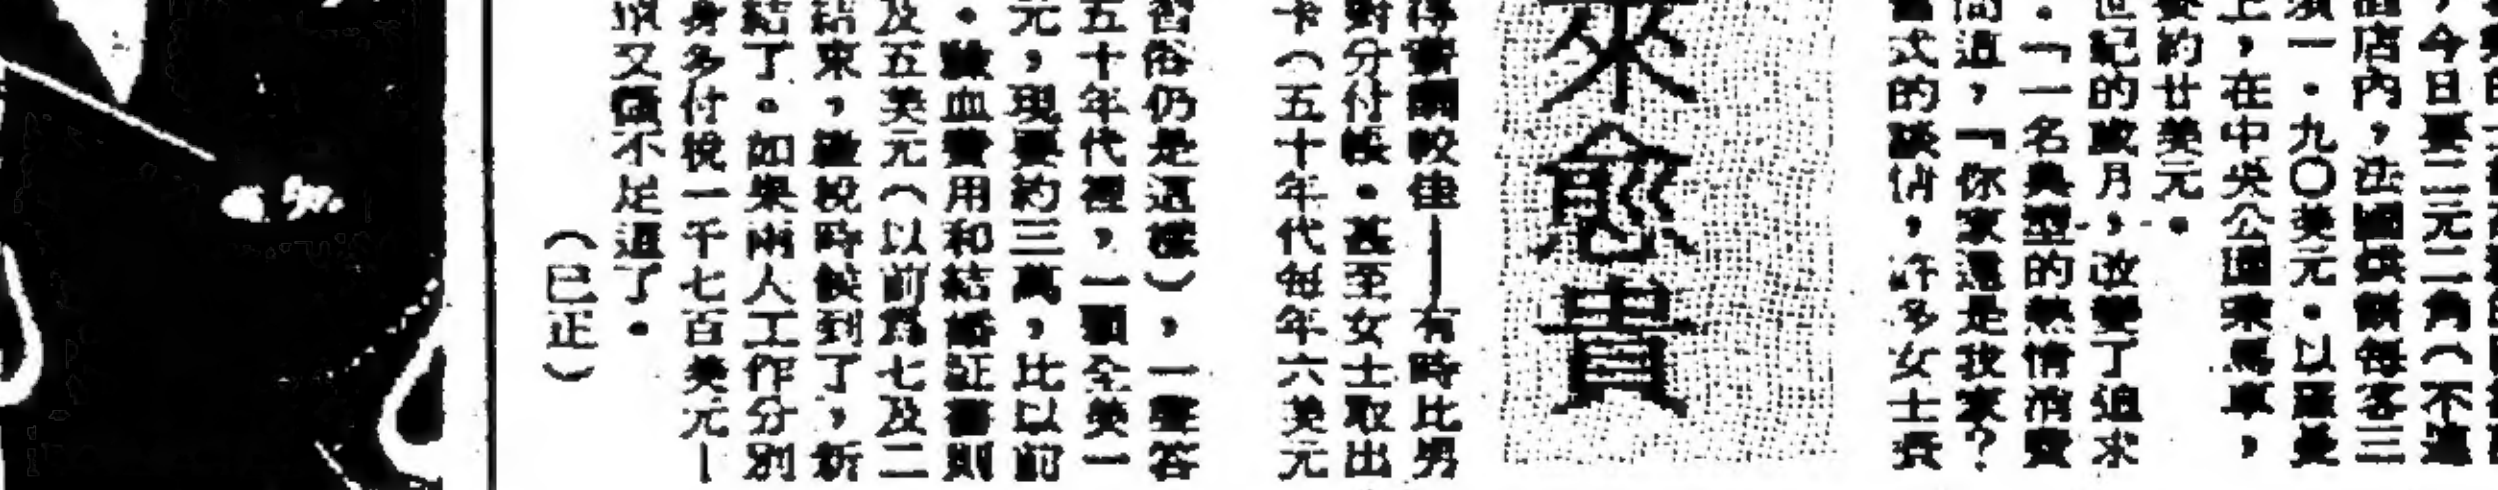 今日要二元二角（不進
酒店內，法國供餐每客三
須一．九〇美元．以羅曼
上，在中央公園乘馬車，
要約廿美元．
世紀的歲月，改變了追求
．「一名典型的熱情消費
問道，「你家還是我家？
式的談情，許多女士賣
來愈貴
得賣調較佳——有時比男
對分付帳．甚至女士取出
卡（五十年代每年六美元
習俗仍是這樣），一壁客
五十年代裡，一顆全美一
元，現要約三萬，比以前
．驗血費用和結婚証書則
及五美元（以前爲七及二
結束，繳稅時候到了，新
結了．如果兩人工作分別
身多付稅一千七百美元—
又值不足道了．
（已正）